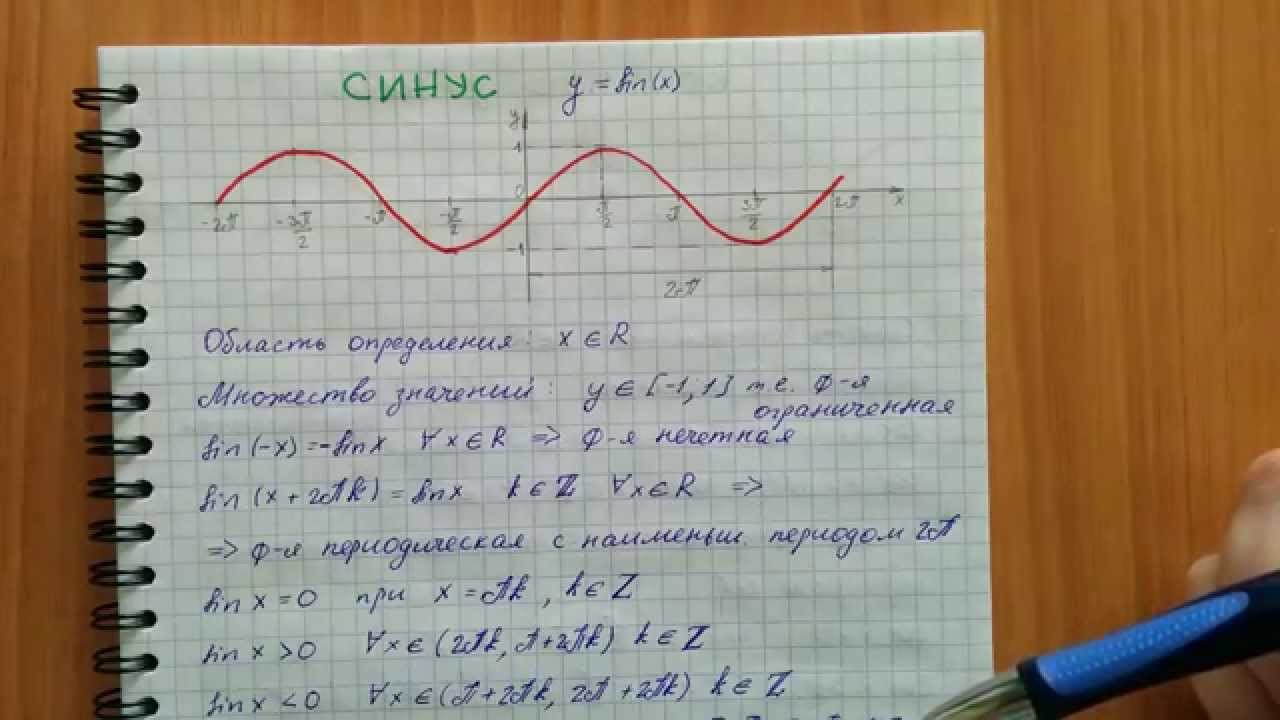 СИНУС y = sin(x)
y
1
0
x
-2π -3π/2 -π -π/2 π/2 π 3π/2 2π
-1
2π
Область определения: x ∈ R
Множество значений: y ∈ [-1; 1] т.е. ф-я
ограниченная
sin(-x) = -sin x ∀x ∈ R => ф-я нечетная
sin(x + 2πk) = sin x k ∈ Z ∀x ∈ R =>
=> ф-я периодическая с наименьш. периодом 2π
sin x = 0 при x = πk, k ∈ Z
sin x > 0 ∀x ∈ (2πk, π + 2πk) k ∈ Z
sin x < 0 ∀x ∈ (π + 2πk, 2π + 2πk) k ∈ Z